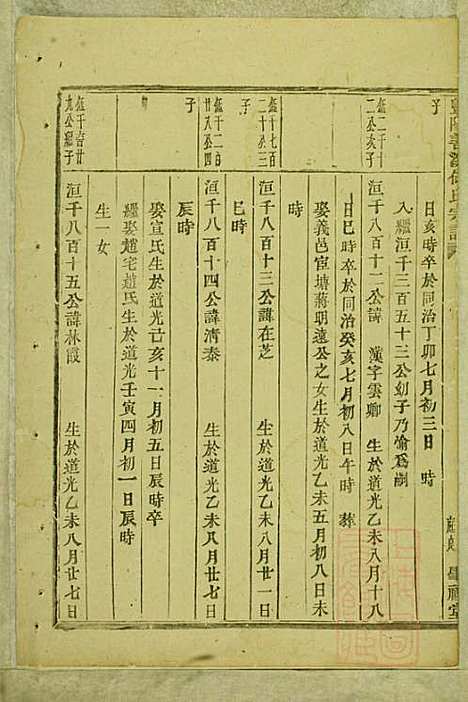 日亥時卒於同治丁卯七月初三日 時
子
入繼洹千三百五十三公幼子乃愉爲嗣
洹千八百十二公諱 漢字雲卿 生於道光乙未八月十八
二公亥子
日巳時卒於同治癸亥七月初八日午時 葬
娶義邑官塘蔣明遠公之女生於道光乙未五月初八日未
時
洹千八百十三公諱在芝 生於道光乙未八月廿一日
二十八公三
子
巳時
洹千八百十四公諱清泰 生於道光乙未八月廿七日
廿八公四
子
辰時
娶宣氏生於道光己亥十一月初五日辰時卒
繼娶趙宅趙氏生於道光壬寅四月初一日辰時
生一女
洹千八百十五公諱林霞 生於道光乙未八月廿七日
九公繼子